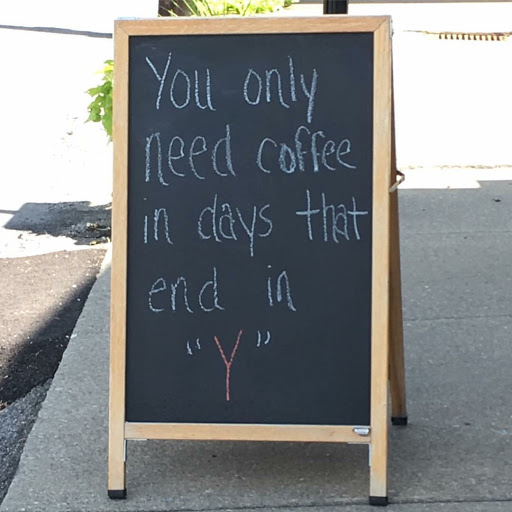 You only
need coffee
in days that
end in
"Y"